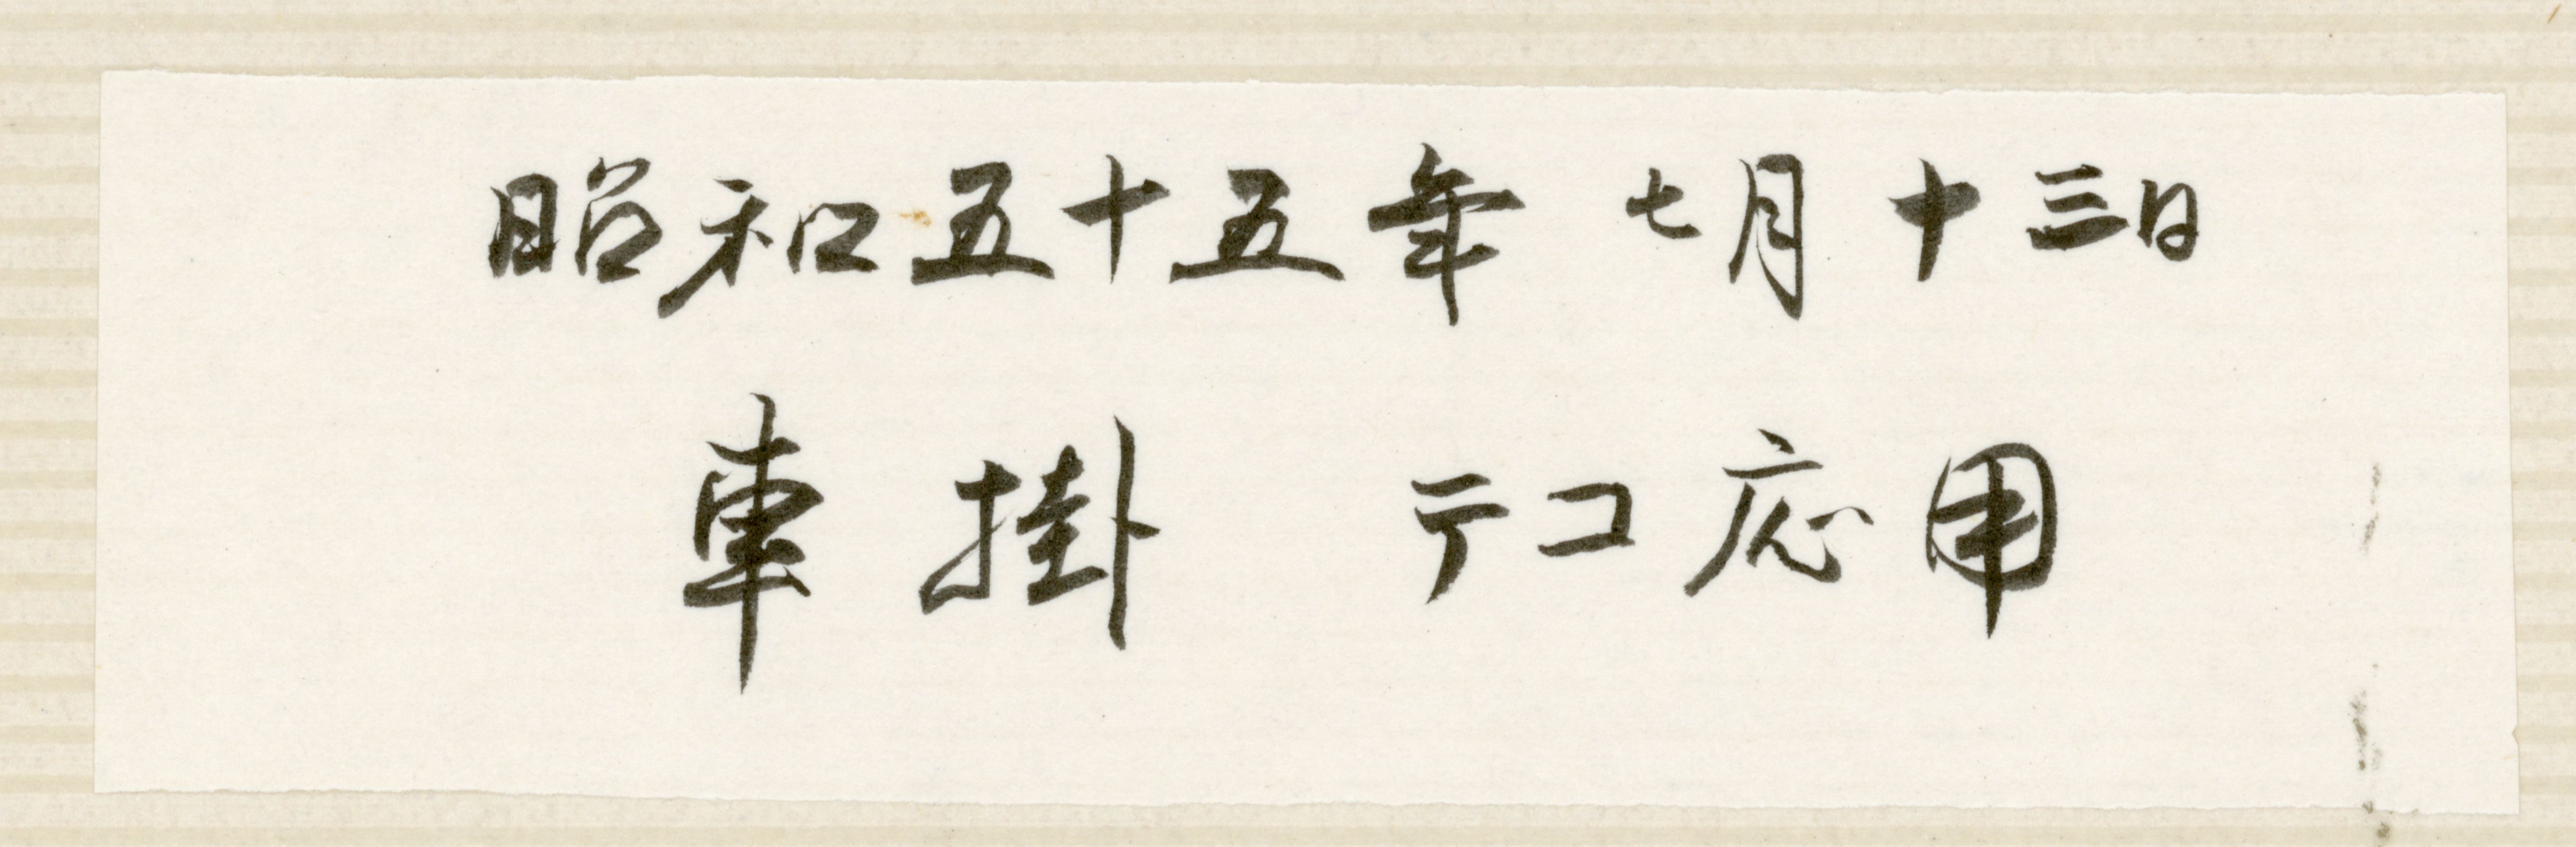 昭和五十五年 七月十三日
車掛 テコ応用